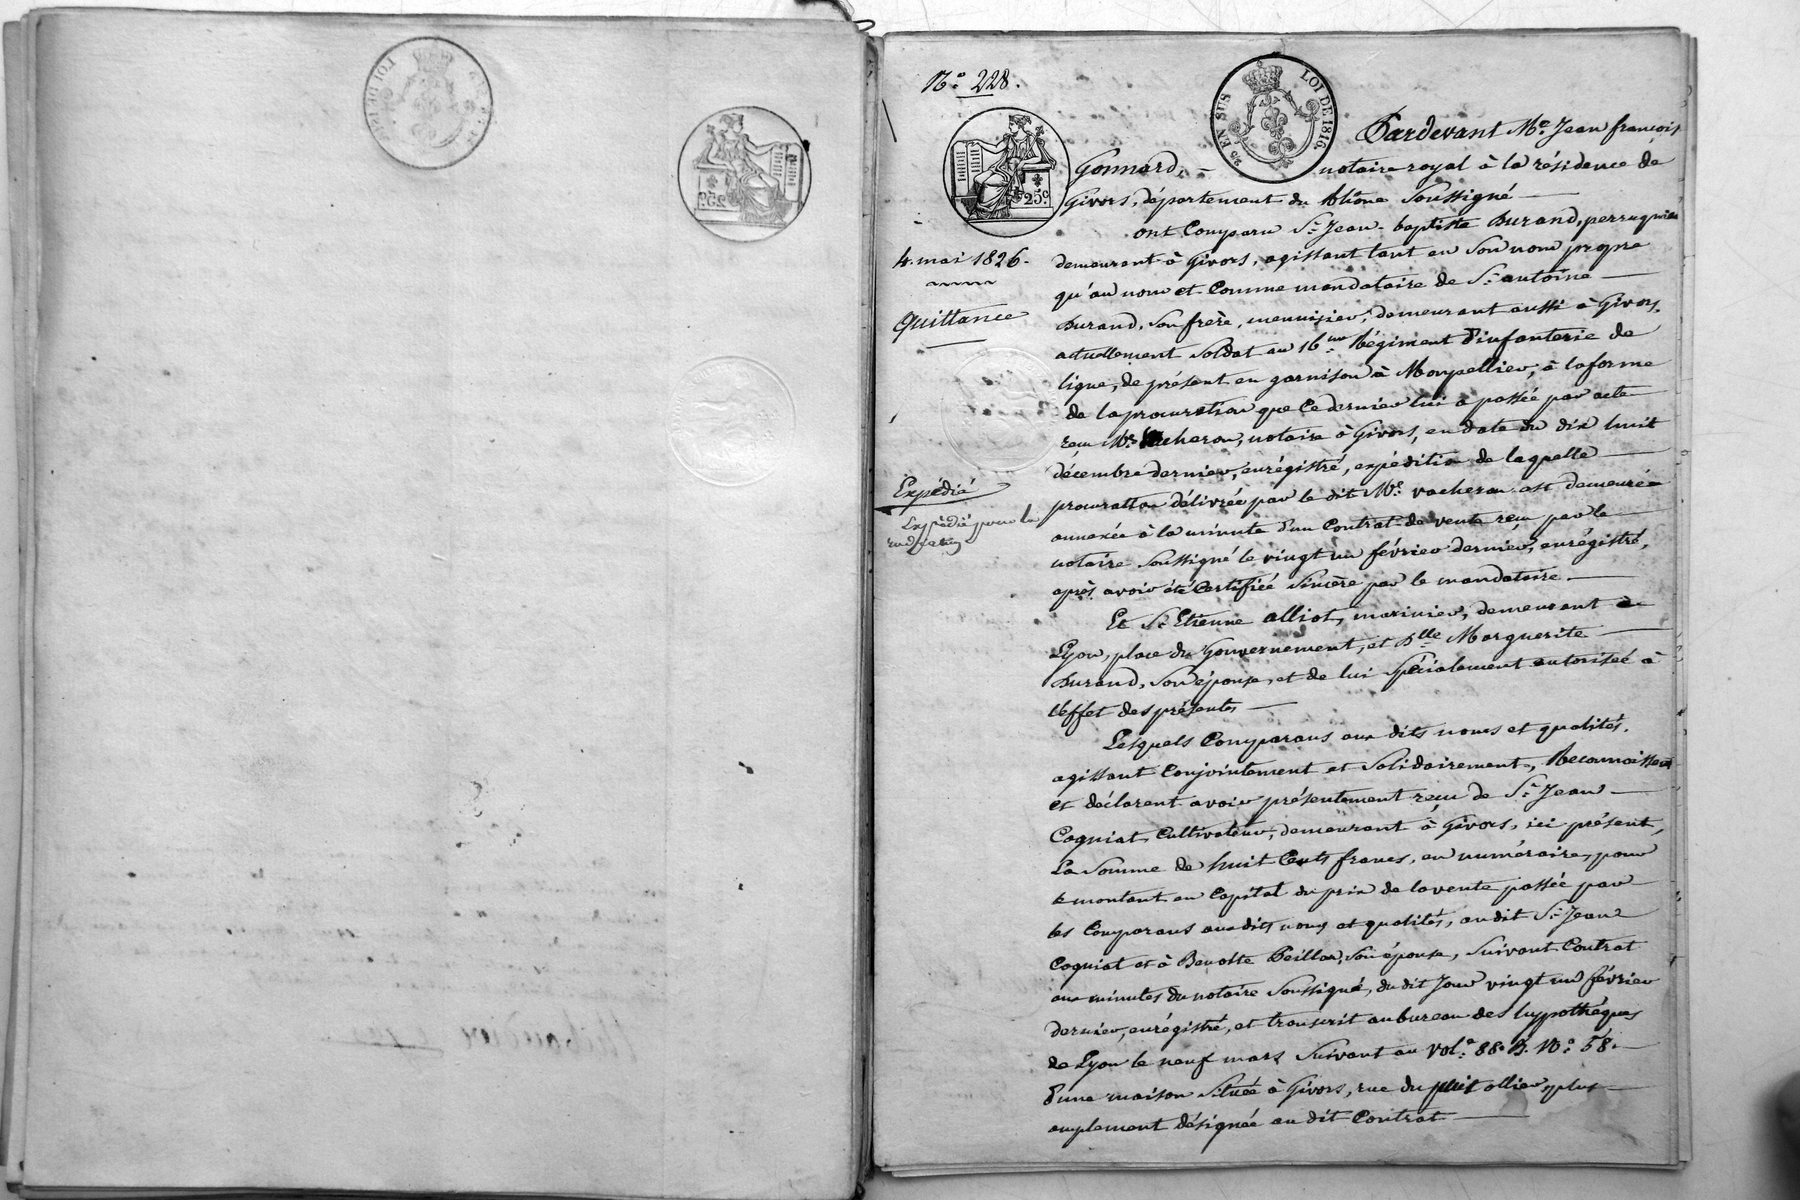 N.o 228.
LOI DE 1816.
25 EN SUS
25c.
4. mai 1826.
Quittance
Expédié
Expédié pour la
Pardevant Me. Jean françois
Gonnard, notaire royal à la résidence de
Givors, département du Rhône Soussigné
ont Comparu Sr. Jean-baptiste Durand, perruquier
demeurant à Givors, agissant tant en Son nom propre
qu'au nom et Comme mandataire de Sr. antoine
Durand, Son frère, menuisier, demeurant aussi à Givors,
actuellement Soldat au 16me. Régiment d'infanterie de
ligne, de présent en garnison à Monpellier, à laforme
de la procuration que Ce dernier lui a passée par acte
reçu Me. Vacheron, notaire à Givors, en date du dix huit
décembre dernier, enrégistré, expédition de laquelle
procuration délivrée par le dit Me. vacheron est demeurée
annexée à la minute d'un Contrat de vente reçu par le
notaire Soussigné le vingt un février dernier, enrégistré,
après avoir été Certifiée Sincère par le mandataire.
Et Sr. Etienne alliot, marinier, demeurant à
Lyon, place du Gouvernement, et Dlle Marguerite
Durand, Son épouse, et de lui Spécialement autorisée à
l'effet des présentes
Lesquels Comparans aux dits noms et qualités,
agissant Conjointement et Solidairement, Reconnoissent
et déclarent avoir présentement reçu de Sr. Jean
Coquiat, Cultivateur, demeurant à Givors, ici présent,
La Somme de huit Cents francs, en numéraire, pour
le montant en Capital du prix de la vente passée par
les Comparans aux dits noms et qualités, au dit Sr. Jean
Coquiat et à Benoîte Peillon, Son épouse, Suivant Contrat
aux minutes du notaire Soussigné, du dit Jour vingt un février
dernier, enrégistré, et transcrit au bureau des hypothéques
de Lyon le neuf mars Suivant au vol. 88. B. No. 58.
d'une maison Située à Givors, rue du puit ollier, plus
amplement désignée au dit Contrat